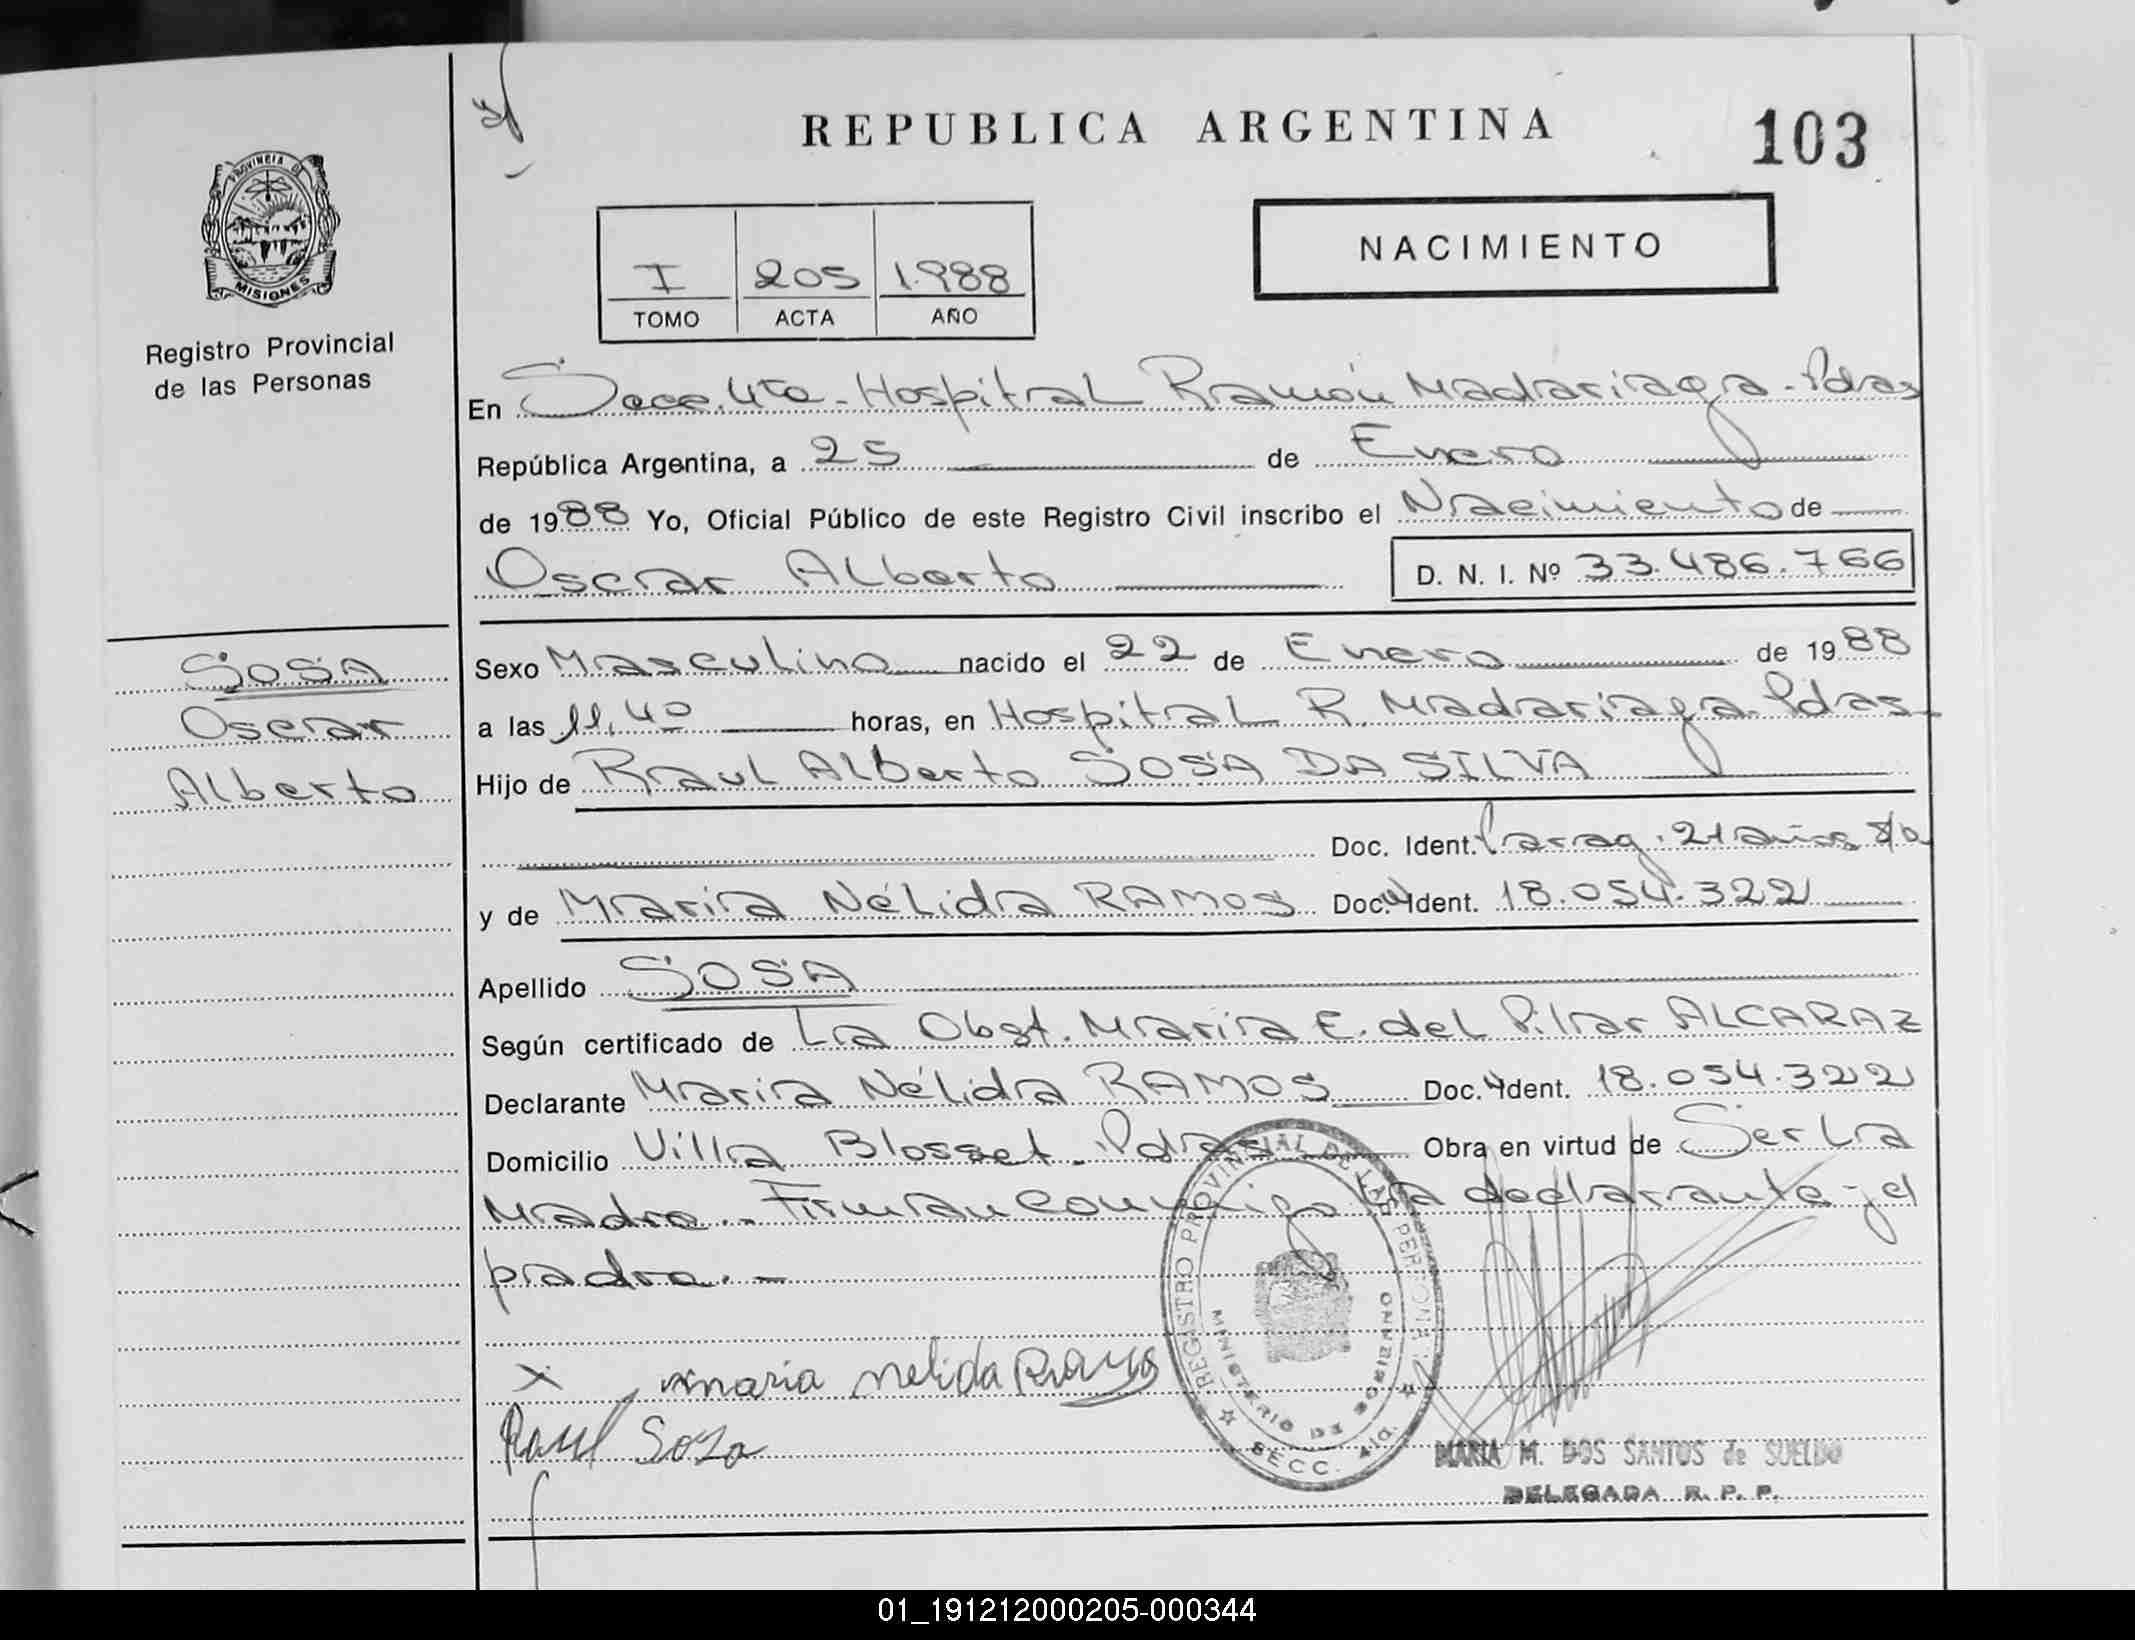 REPUBLICA ARGENTINA
103
PROVINCIA DE
MISIONES
Registro Provincial
de las Personas
NACIMIENTO
I 205 1.988
TOMO ACTA AÑO
En Secc. 4ta - Hospital Ramón Madariaga - Pdas
República Argentina, a 25 de Enero
de 1988 Yo, Oficial Público de este Registro Civil inscribo el Nacimiento de
Oscar Alberto D. N. I. Nº 33.486.766
SOSA
Oscar
Alberto
Sexo Masculino nacido el 22 de Enero de 1988
a las 11,40 horas, en Hospital R. Madariaga - Pdas
Hijo de Raul Alberto SOSA DA SILVA
Doc. Ident. Parag. 21 años
y de Maria Nélida RAMOS Doc. Ident. 18.054.322
Apellido SOSA
Según certificado de La Obst. Maria E. del Pilar ALCARAZ
Declarante Maria Nélida RAMOS Doc. Ident. 18.054.322
Domicilio Villa Blosset - Pdas Obra en virtud de Ser La
Madre.- Firman conmigo la declarante y el
padre.-
x maria nelida Ramos
Raul Sosa
REGISTRO PROVINCIAL DE LAS PERSONAS
MINISTERIO DE GOBIERNO
SECC. 4ta.
MARIA M. DOS SANTOS de SUELDO
DELEGADA R. P. P.
01_191212000205-000344